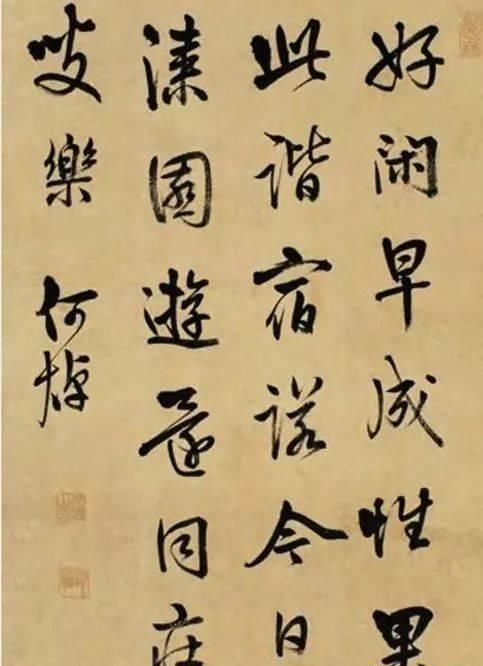 好閑早成性果
此諧宿諾今日
漆園遊還同莊
叟樂 何焯